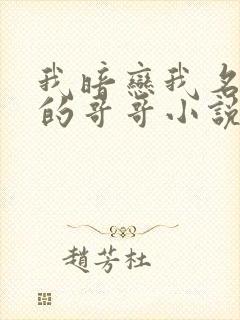 我暗戀我名
的哥哥小說
趙芳杜